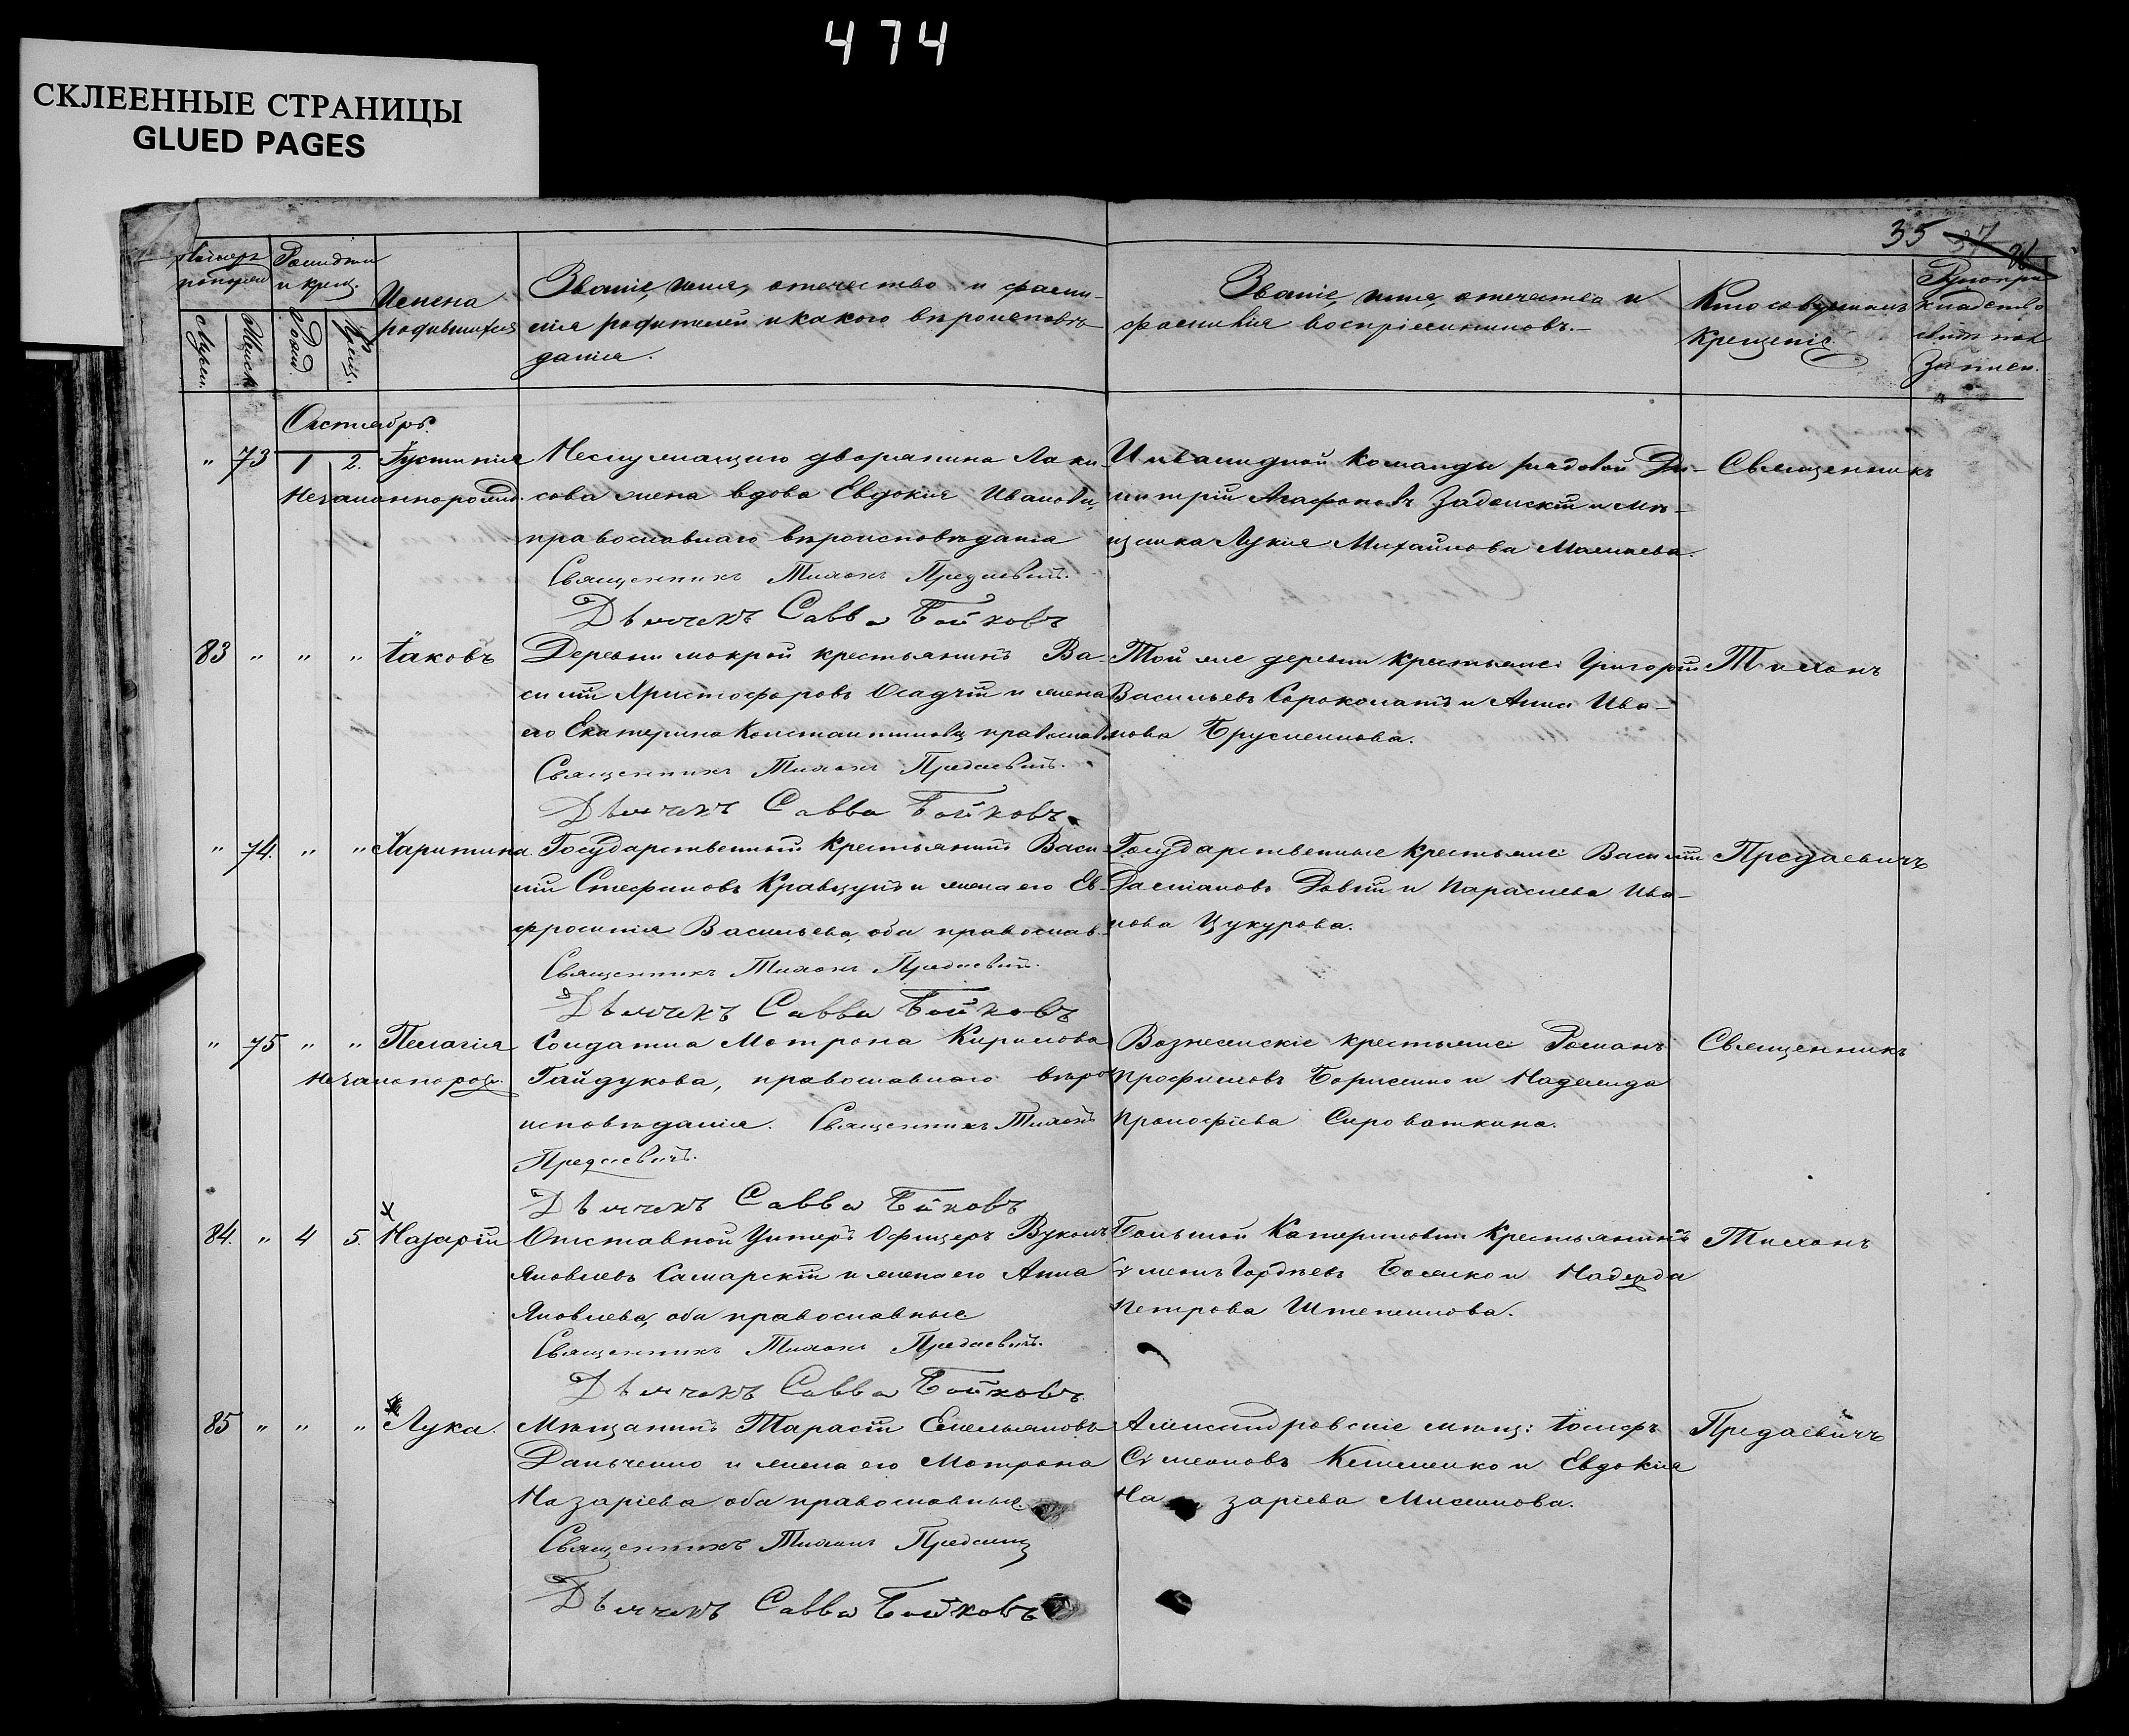 474
СКЛЕЕННЫЕ СТРАНИЦЫ
GLUED PAGES
35 37
Имена
родившихся
Званіе, имя, отечество и фами-
лія родителей и какого вѣроисповѣ-
данія.
Званіе, имя, отечество и
фамилія воспріемниковъ.
Кто совершалъ
крещеніе
Октябрь.
" 73 1 2. Іустинія Неслужащаго дворянина
Незаконнорожд. сова жена вдова Евдокія Иванова,
православнаго вѣроисповѣданія
Священникъ Тихонъ Предаевичъ.
Дьячекъ Савва Бойковъ
Инвалидной команды рядовой Ди-
митрій Агафоновъ Задонскій и мѣ-
щанка Лукія Михайлова
Священникъ
83 " " " Іаковъ Деревни мокрой крестьянинъ Ва-
силій Христофоровъ Осадчій и жена
его Екатерина Константинова, православ.
Священникъ Тихонъ Предаевичъ.
Дьячекъ Савва Бойковъ.
Той же деревни крестьяне: Григорій
Васильевъ Сорокопятъ и Анна Ива-
нова
Тихонъ
" 74. " " Харитина. Государственный крестьянинъ Васи-
лій Стефановъ Кравцунъ и жена его Ев-
фросинія Васильева, оба православ.
Священникъ Тихонъ Предаевичъ.
Дьячекъ Савва Бойковъ
Государственные крестьяне: Василій
Даміановъ Довгій и Параскева Ива-
нова Цукурова.
Предаевичъ
" 75 " " Пелагія Солдатка Мотрона Кирилова
Незаконорож. Гайдукова, православнаго вѣро-
исповѣданія. Священникъ Тихонъ
Предаевичъ.
Дьячекъ Савва Бойковъ
Вознесенскіе крестьяне: Романъ
Трофимовъ Борисенко и Надежда
Прокофіева Сироваткина.
Священникъ
84. " 4 5. Назарій Отставной Унтеръ Офицеръ Вуколъ
Яковлевъ Самарскій и жена его Анна
Яковлева, оба православные
Священникъ Тихонъ Предаевичъ.
Дьячекъ Савва Бойковъ.
Большой Катериновки Крестьянинъ
Сѵмеонъ Гордѣевъ и Надежда
Петрова
Тихонъ
85 " " " Лука. Мѣщанинъ Тарасій Емельяновъ
Данченко и жена его Мотрона
Назаріева оба православные
Священникъ Тихонъ
Дьячекъ Савва Бойковъ
Александровскіе мѣщ: Іосифъ
Сѵмеоновъ и Евдокія
Назаріева
Предаевичъ